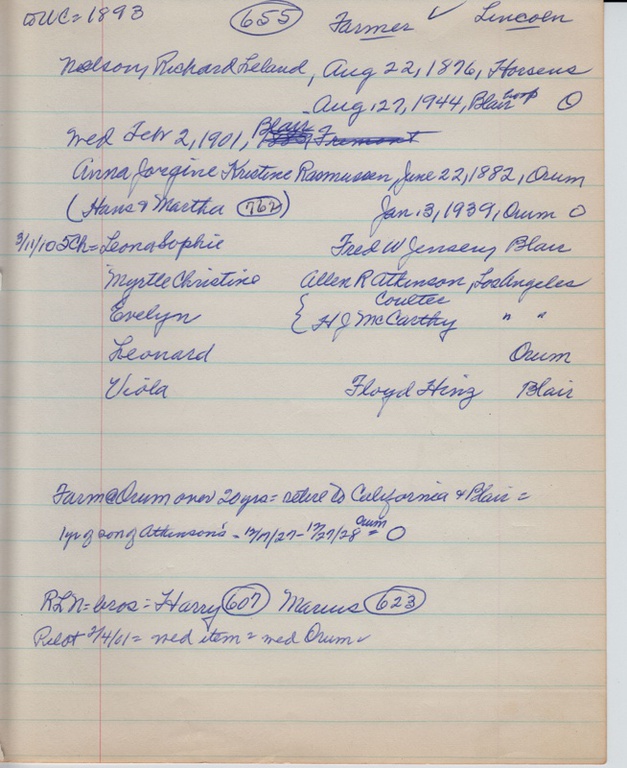 to WC = 1893 655 Farmer ✓ Lincoln
Nelson, Richard Leland, Aug 22, 1876, Horsens
- Aug. 27, 1944, Blair hosp O
wed Feb 2, 1901, Blair Fremont
Anna Jorgine Kristine Rasmussen, June 22, 1882, Orum
(Hans & Martha 762) Jan. 3, 1939, Orum O
3/11/10 5Ch = Leona Sophie Fred W Jensen, Blair
Myrtle Christine Allen R Atkinson, Los Angeles
Coulter
Evelyn { H J McCarthy " "
Leonard Orum
Viola Floyd Hinz Blair
Farm @ Orum over 20 yrs = retire to California & Blair =
1 yr old son of Atkinson's - 12/17/27 - 12/27/28 Orum = O
RLN = bros = Harry 607 Marius 623
Pilot 2/4/01 = wed item = wed Orum